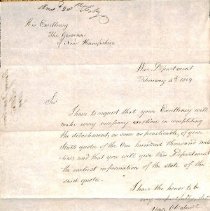 His Excellency
The Governor
of New Hampshire
War Department
February 4th
Sir
I have to request that your Excellency will
make every necessary exertion in completing
the detachment, as soon as practicable, of your
State's quota of the one hundred thousand
and that you will give this Department
the earliest information of the state of the
said quota.
I have the honor to be
very
your Obedient